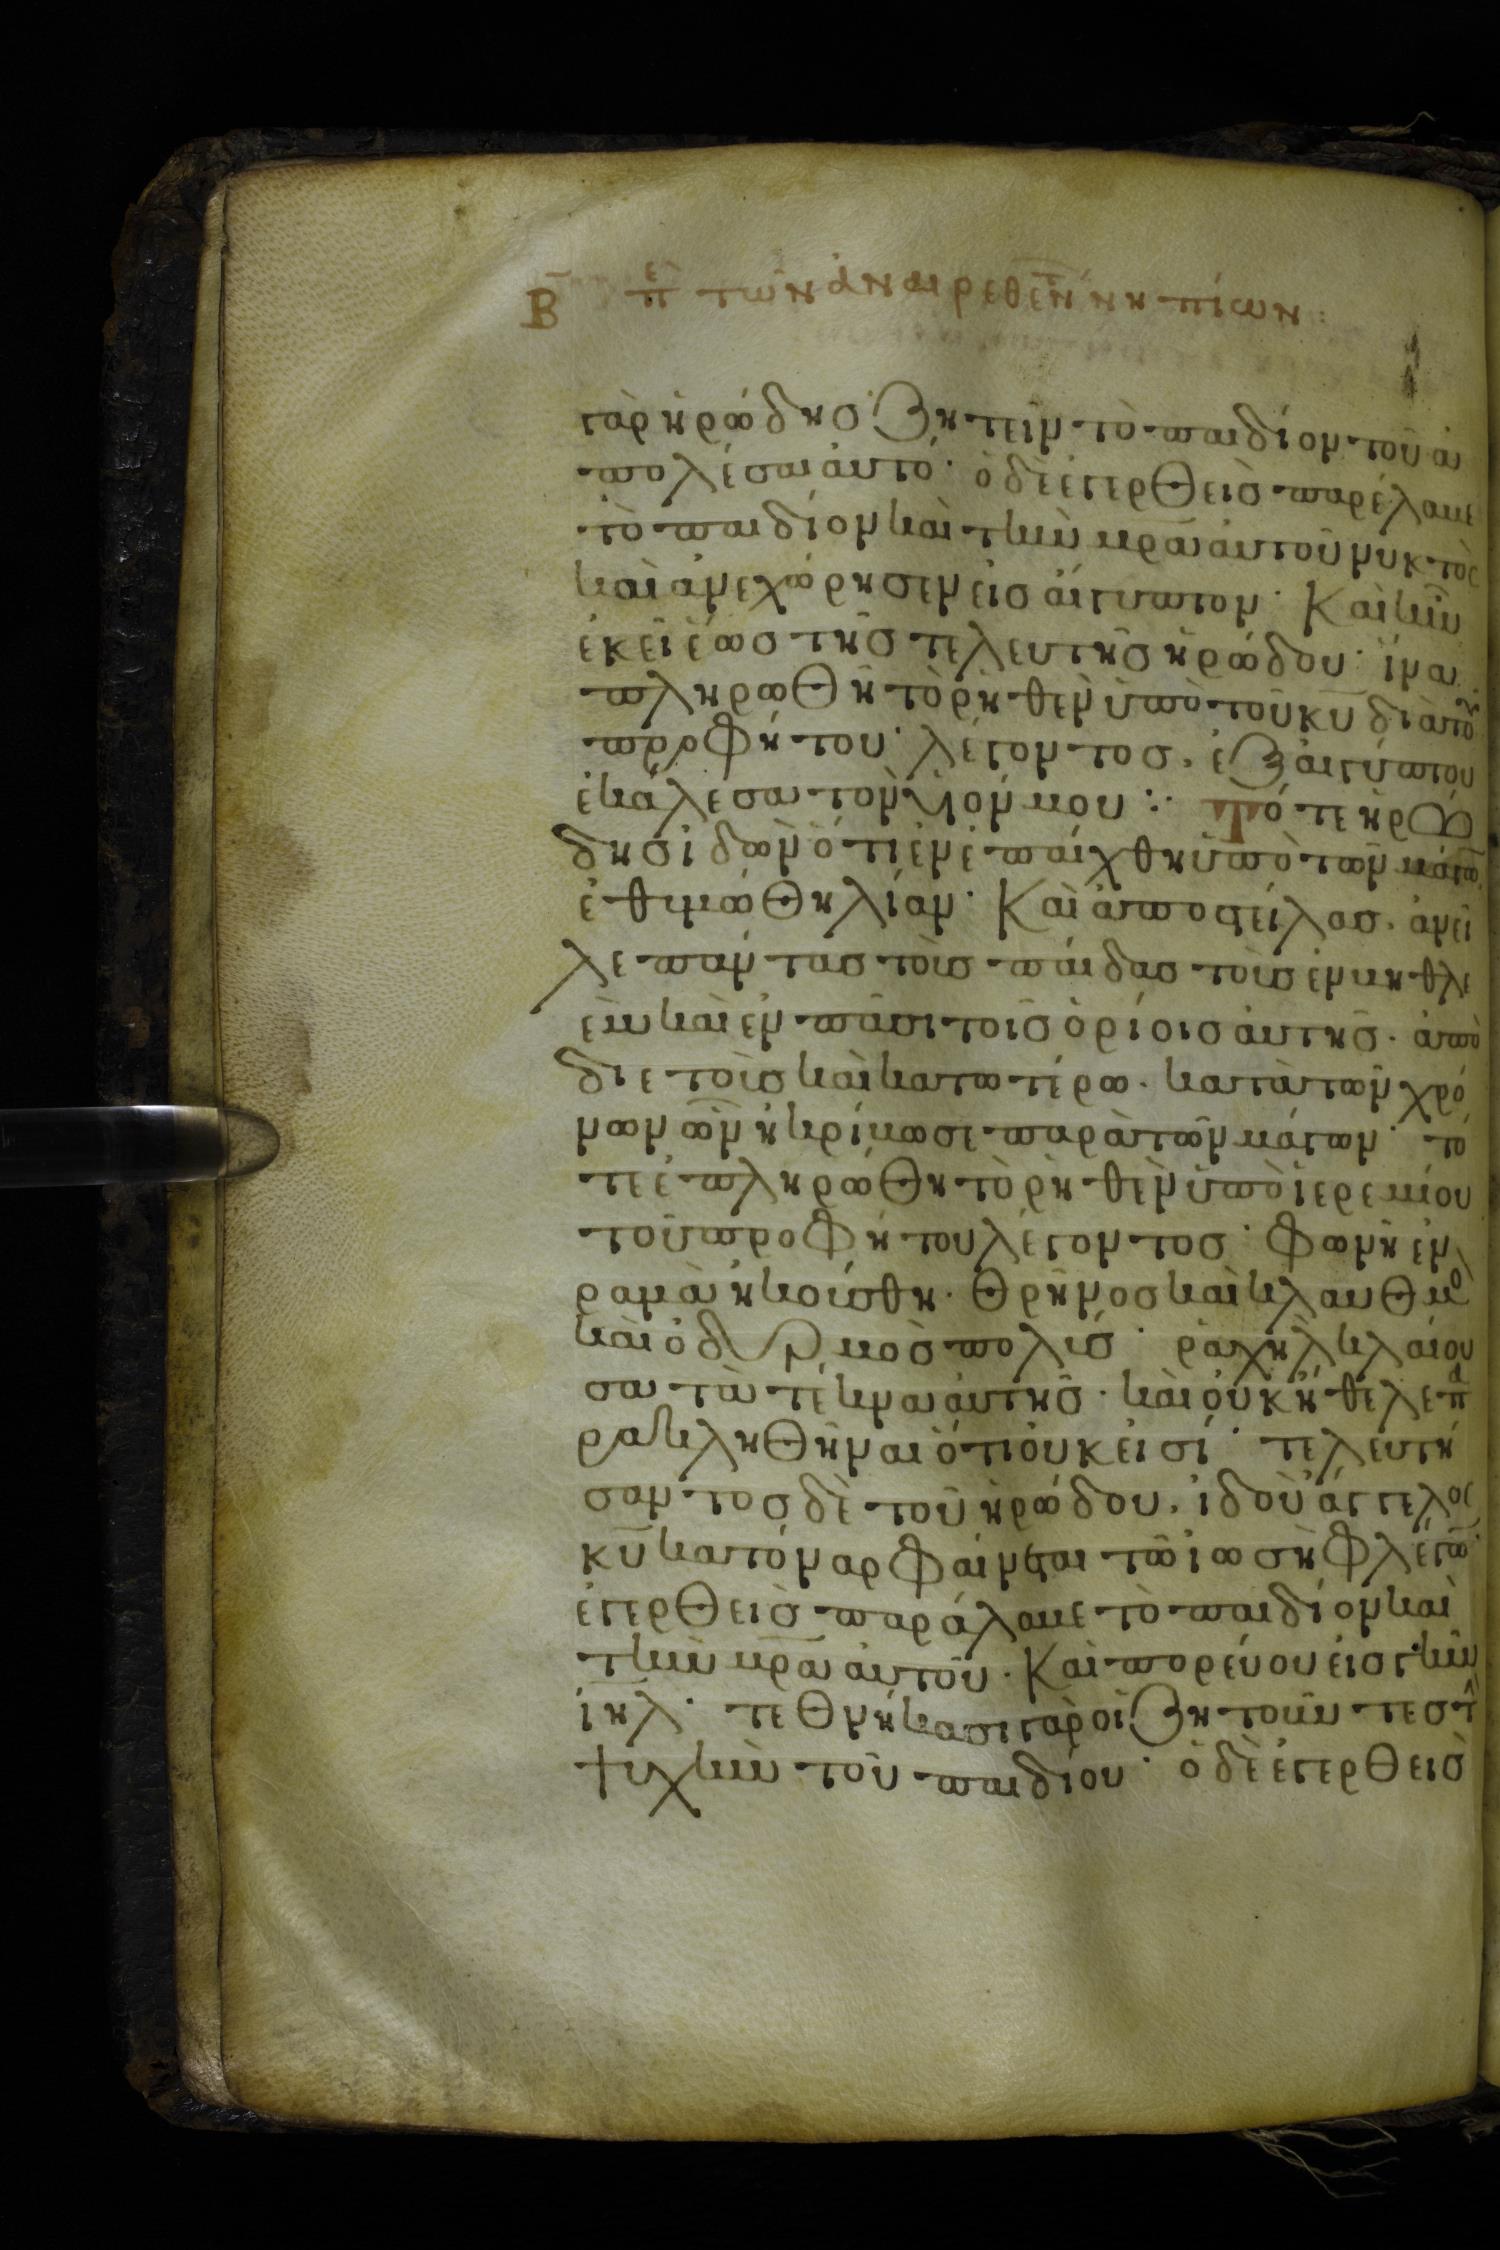 Β̅ πε τῶν ἀναιρεθέν νηπίων:
γὰρ ἡρώδης ζητεῖν τὸ παιδίον τοῦ ἀ
πολέσαι αὐτό· ὁ δὲ ἐγερθεὶς παρέλαβε
τὸ παιδίον καὶ τὴν μ̅ρ̅α αὐτοῦ νυκτὸς
καὶ ἀνεχώρησεν εἰς αἴγυπτον· Καὶ ἦν
ἐκεῖ ἕως τῆς τελευτῆς ἡρώδου· ἵνα
πληρωθῆ τὸ ῥηθὲν ὑπὸ τοῦ κ̅υ̅ διὰ τοῦ
προφήτου, λέγοντος· ἐξ αἰγύπτου
ἐκάλεσα τὸν υἱόν μου:· Τότε ἡρώ
δης ἰδὼν ὅτι ἐνεπαίχθη ὑπὸ τῶν μάγων,
ἐθυμώθη λίαν· Καὶ ἀποστείλας· ἀνεῖ
λε πάντας τοὺς παῖδας τοὺς ἐν βηθλε
ὲμ καὶ ἐν πᾶσι τοῖς ὁρίοις αὐτῆς· ἀπὸ
διετοῦς καὶ κατωτέρω· κατὰ τὸν χρό
νον ὃν ἠκρίβωσε παρὰ τῶν μάγων· τό
τε ἐπληρώθη τὸ ῥηθὲν ὑπὸ ἰερεμίου
τοῦ προφήτου λέγοντος· Φωνὴ ἐν
ραμὰ ἠκούσθη· Θρῆνος καὶ κλαυθμὸ
καὶ ὀδυρμὸς πολύς· ραχὴλ κλαίου
σα τὰ τέκνα αὐτῆς· καὶ οὐκ ἤθελε πα
ρακληθῆναι ὅτι οὐκ εἰσί· τελευτή
σαντος δὲ τοῦ ἡρώδου, ἰδοὺ ἄγγελος
κ̅υ̅ κατόναρ φαίνεται τῶ ἰωσὴφ λέγω·
ἐγερθεὶς παράλαβε τὸ παιδίον καὶ
τὴν μ̅ρ̅α αὐτοῦ· Καὶ πορεύου εἰς γῆν
ἰ̅η̅λ̅· τεθνήκασι γὰρ οἱ ζητοῦντες τὴν
ψυχὴν τοῦ παιδίου· ὁ δὲ ἐγερθεὶς